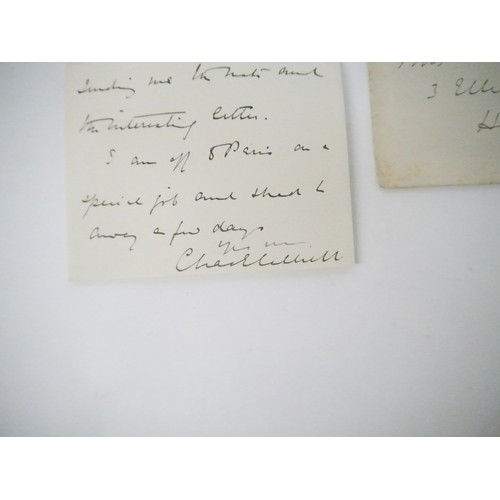 sending me the note and
the interesting letter.
I am off to Paris on a
special job and shall be
away a few days
Yrs
3 Elli
H